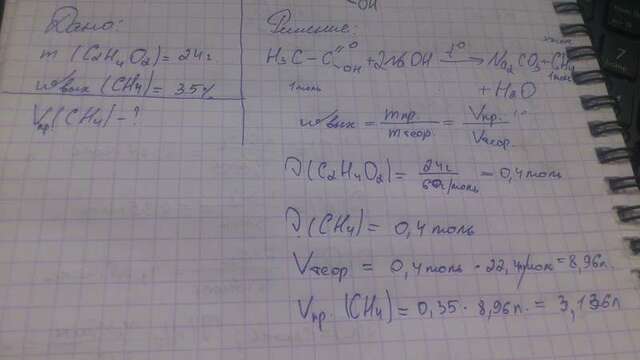 OH
Дано:
m (C2H4O2) = 24г
ω вых (CH4) = 35%
Vпр. (CH4) - ?
Решение:
H3C – C =O –OH + 2NaOH t° → Na2CO3 + CH4
1 моль 1 моль
+ H2O
ω вых = mпр. / mтеор. = Vпр. / Vтеор.
ν (C2H4O2) = 24г / 60г/моль = 0,4 моль
ν (CH4) = 0,4 моль
Vтеор = 0,4 моль · 22,4 л/моль = 8,96л.
Vпр. (CH4) = 0,35 · 8,96л. = 3,136л